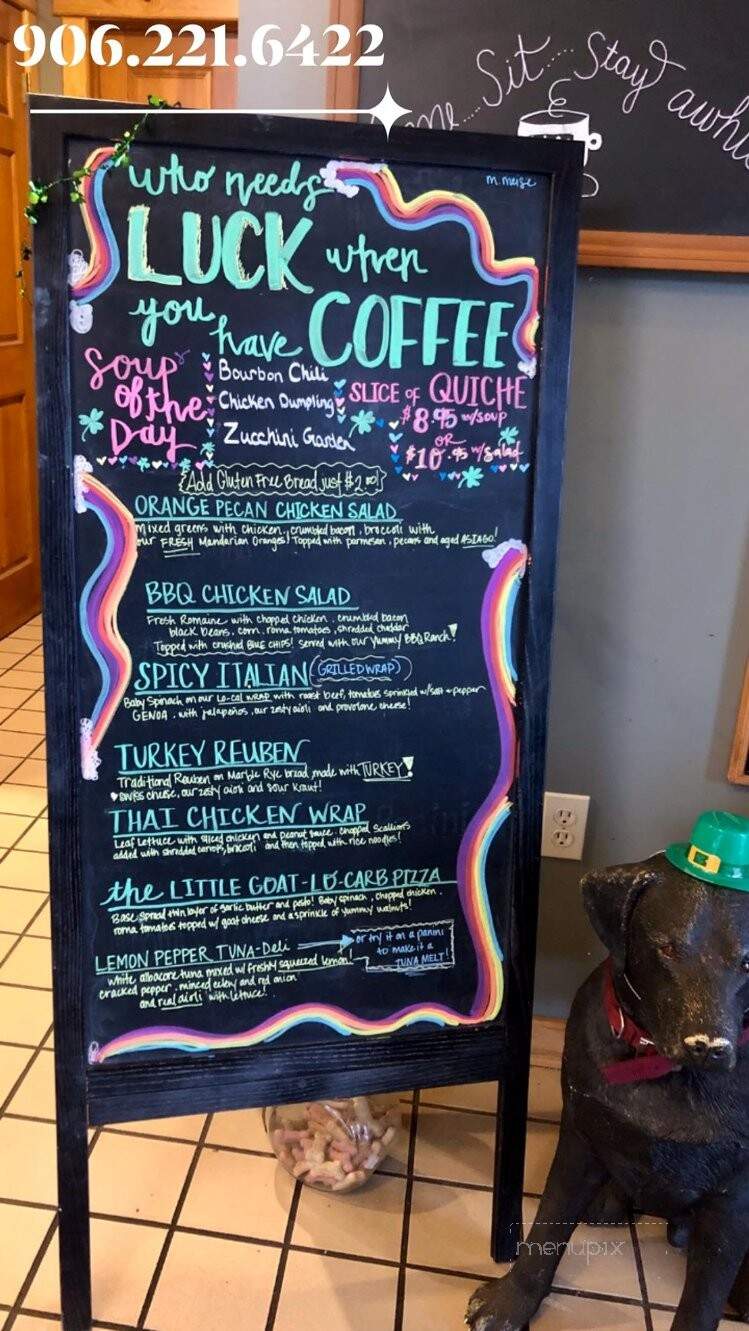 906.221.6422
Sit... Stay awhi
m. meise
who needs
LUCK when
you have COFFEE
Soup's of the Day
Bourbon Chili
Chicken Dumpling
Zucchini Garden
SLICE OF QUICHE
$8.95 w/soup
OR
$10.95 w/Salad
Add Gluten Free Bread just $2.00!
ORANGE PECAN CHICKEN SALAD
Mixed greens with chicken, crumbled bacon, broccoli with
our FRESH Mandarian Oranges! Topped with parmesan, pecans and aged ASIAGO!
BBQ CHICKEN SALAD
Fresh Romaine with chopped chicken, crumbled bacon
black beans, corn, roma tomatoes, shredded cheddar
Topped with crushed BLUE CHIPS! Served with our yummy BBQ Ranch!
SPICY ITALIAN (GRILLED WRAP)
Baby Spinach on our LO-cal WRAP with roast beef, tomatoes sprinkled w/salt + pepper
GENOA, with jalapeños, our zesty aioli and provolone cheese!
TURKEY REUBEN
Traditional Reuben on Marble Rye bread, made with TURKEY!
swiss cheese, our zesty aioli and sour kraut!
THAI CHICKEN WRAP
Leaf Lettuce with sliced chicken and peanut sauce. chopped Scallions
added with shredded carrots, and then topped with rice noodles!
the LITTLE GOAT-LO-CARB PIZZA
Base spread thin layer of garlic butter and pesto! Baby spinach, chopped chicken,
roma tomatoes topped w/ goat cheese and a sprinkle of yummy walnuts!
LEMON PEPPER TUNA-Deli
or try it on a panini
to make it a
TUNA MELT!
white albacore tuna mixed w/ freshly squeezed lemon!
cracked pepper, minced celery and red onion
and real aioli with lettuce!
menupix